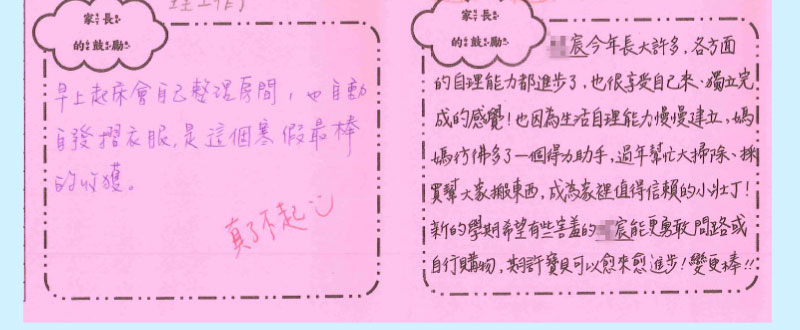 家長
的鼓勵
早上起床會自己整理房間，也自動
自發摺衣服，是這個寒假最棒
的收獲。
真了不起
家長
的鼓勵
宸今年長大許多，各方面
的自理能力都進步了，也很享受自己來、獨立完
成的感覺！也因為生活自理能力慢慢建立，媽
媽彷彿多了一個得力助手，過年幫忙大掃除、採
買幫大家搬東西，成為家裡值得信賴的小壯丁！
新的學期希望有些害羞的宸能更勇敢問路或
自行購物，期許寶貝可以愈來愈進步！變更棒！！